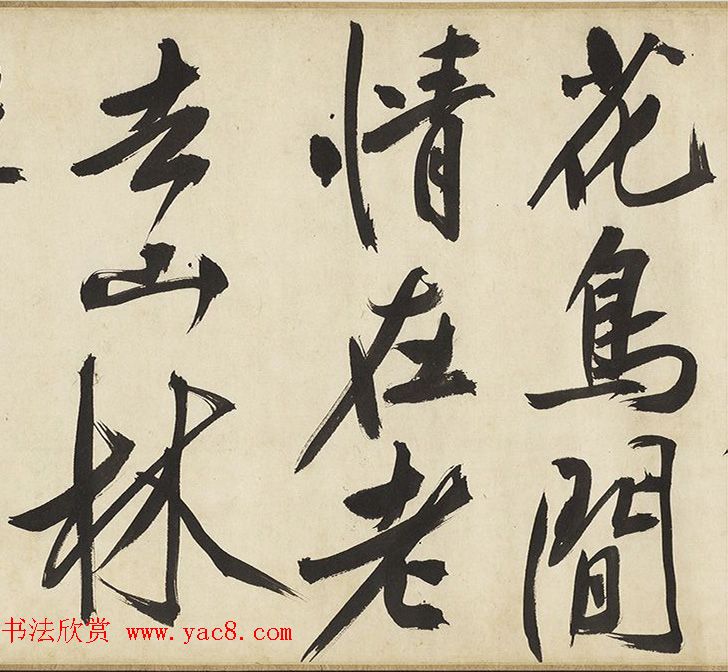 花鳥間
情在老
去山林
书法欣赏 www.yac8.com